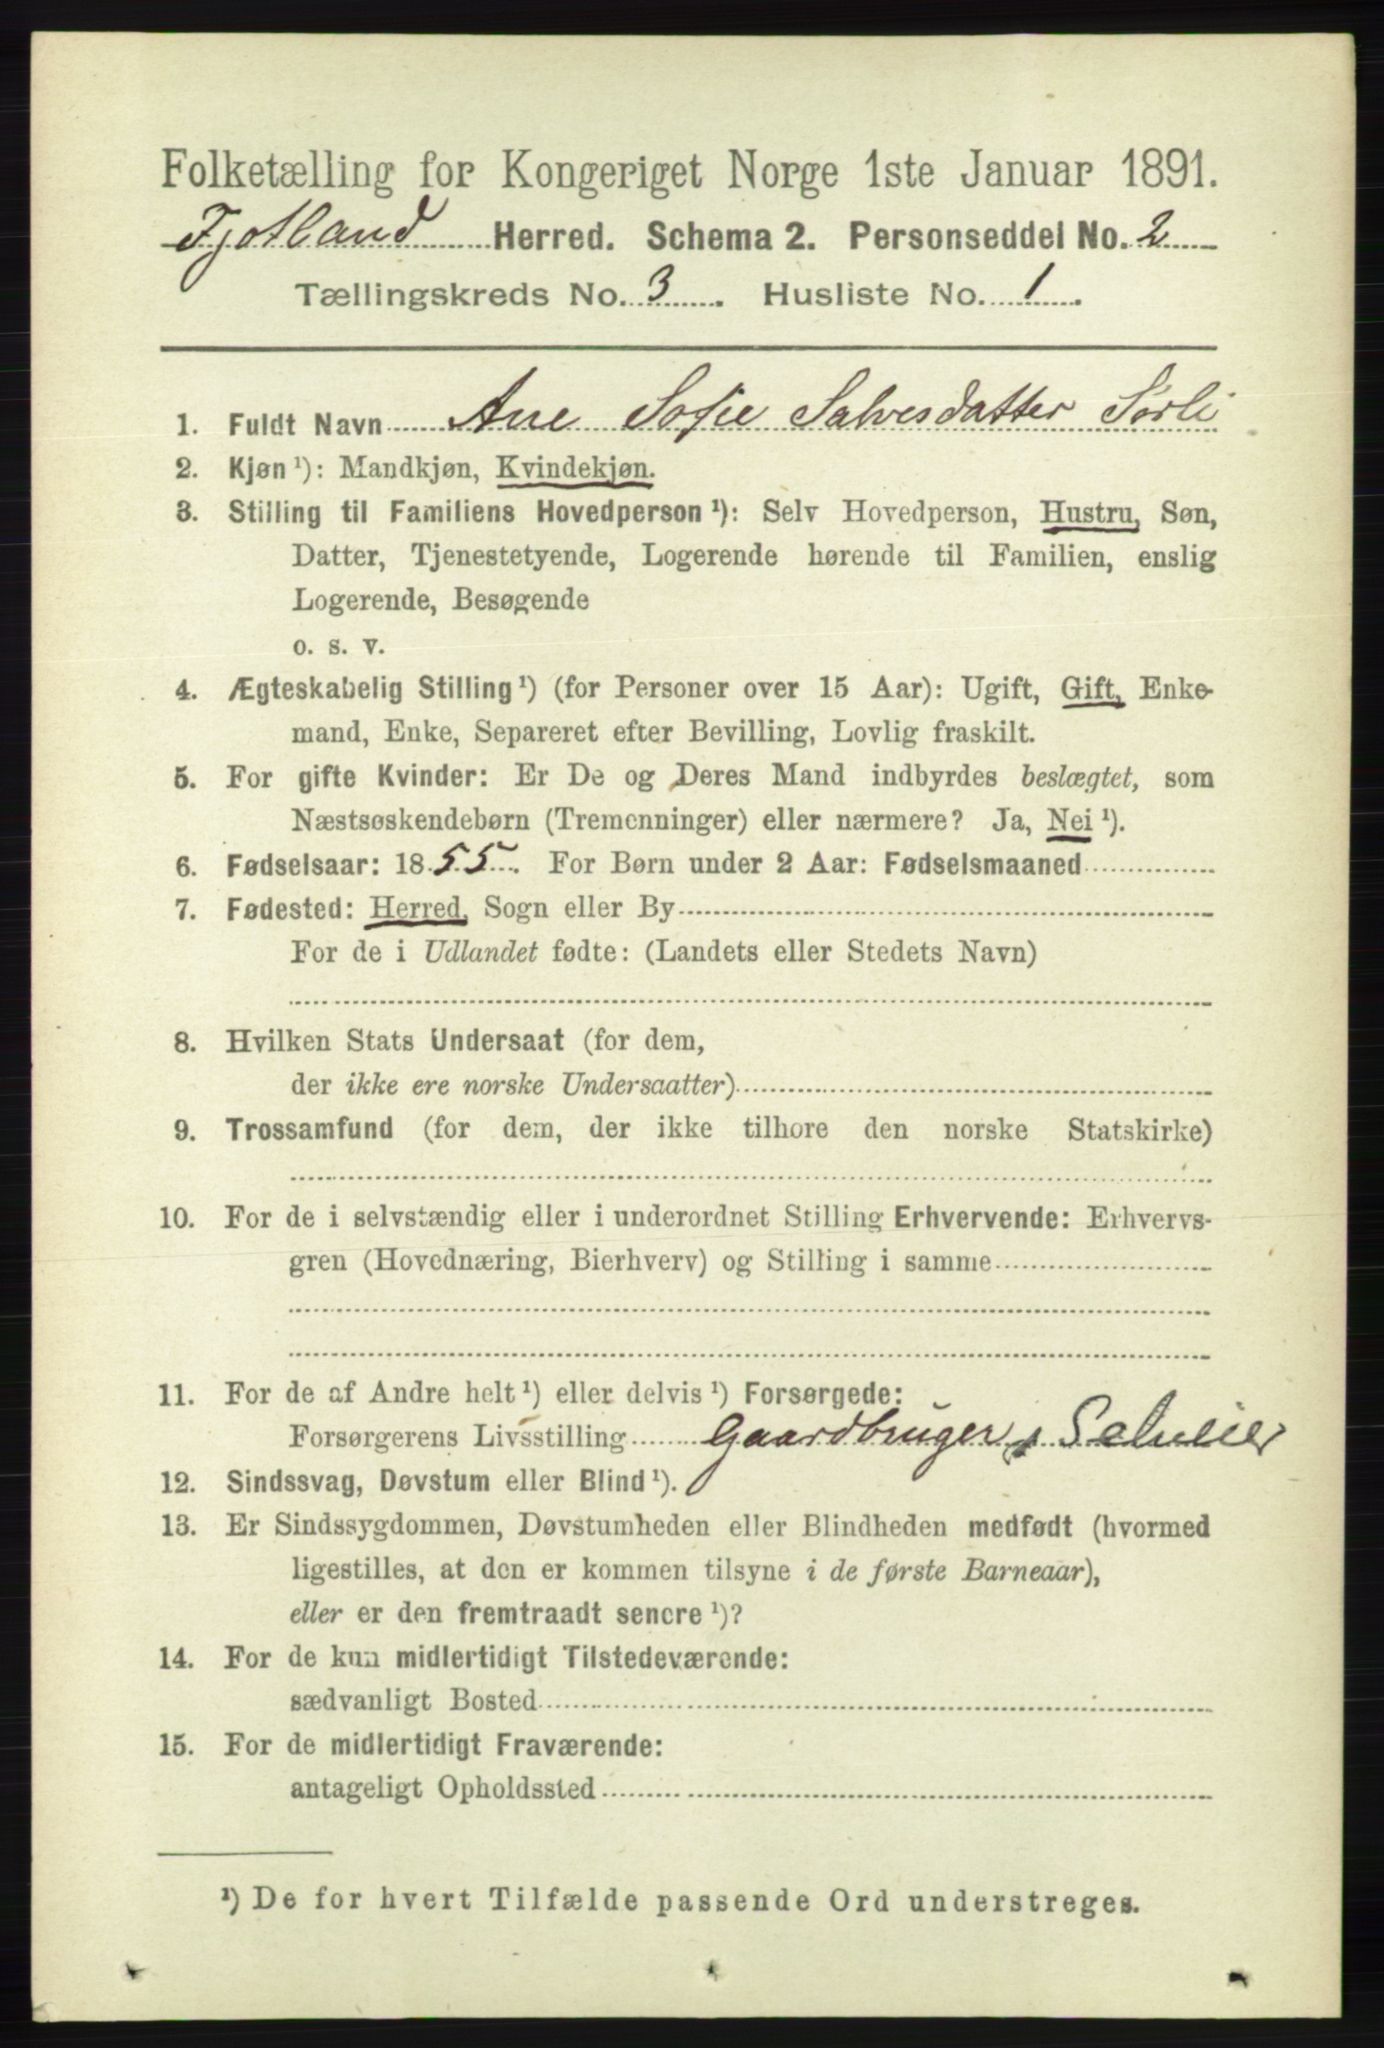 Folketælling for Kongeriget Norge 1ste Januar 1891.
Fjotland Herred. Schema 2. Personseddel No. 2
Tællingskreds No. 3. Husliste No. 1.
1. Fuldt Navn Ane Sofie Salvesdatter Sørli
2. Kjøn ¹): Mandkjøn, Kvindekjøn.
3. Stilling til Familiens Hovedperson ¹): Selv Hovedperson, Hustru, Søn,
Datter, Tjenestetyende, Logerende hørende til Familien, enslig
Logerende, Besøgende
o. s. v.
4. Ægteskabelig Stilling ¹) (for Personer over 15 Aar): Ugift, Gift, Enke-
mand, Enke, Separeret efter Bevilling, Lovlig fraskilt.
5. For gifte Kvinder: Er De og Deres Mand indbyrdes beslægtet, som
Næstsøskendebørn (Tremenninger) eller nærmere? Ja, Nei ¹).
6. Fødselsaar: 1855. For Børn under 2 Aar: Fødselsmaaned
7. Fødested: Herred, Sogn eller By
For de i Udlandet fødte: (Landets eller Stedets Navn)
8. Hvilken Stats Undersaat (for dem,
der ikke ere norske Undersaatter)
9. Trossamfund (for dem, der ikke tilhøre den norske Statskirke)
10. For de i selvstændig eller i underordnet Stilling Erhvervende: Erhvervs-
gren (Hovednæring, Bierhverv) og Stilling i samme
11. For de af Andre helt ¹) eller delvis ¹) Forsørgede:
Forsørgerens Livsstilling Gaardbruger, Selveier
12. Sindssvag, Døvstum eller Blind ¹).
13. Er Sindssygdommen, Døvstumheden eller Blindheden medfødt (hvormed
ligestilles, at den er kommen tilsyne i de første Barneaar),
eller er den fremtraadt senere ¹)?
14. For de kun midlertidigt Tilstedeværende:
sædvanligt Bosted
15. For de midlertidigt Fraværende:
antageligt Opholdssted
¹) De for hvert Tilfælde passende Ord understreges.